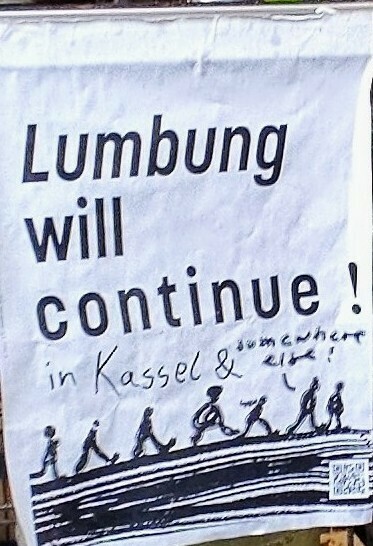 Lumbung
will
continue !
in Kassel & somewhere
else !